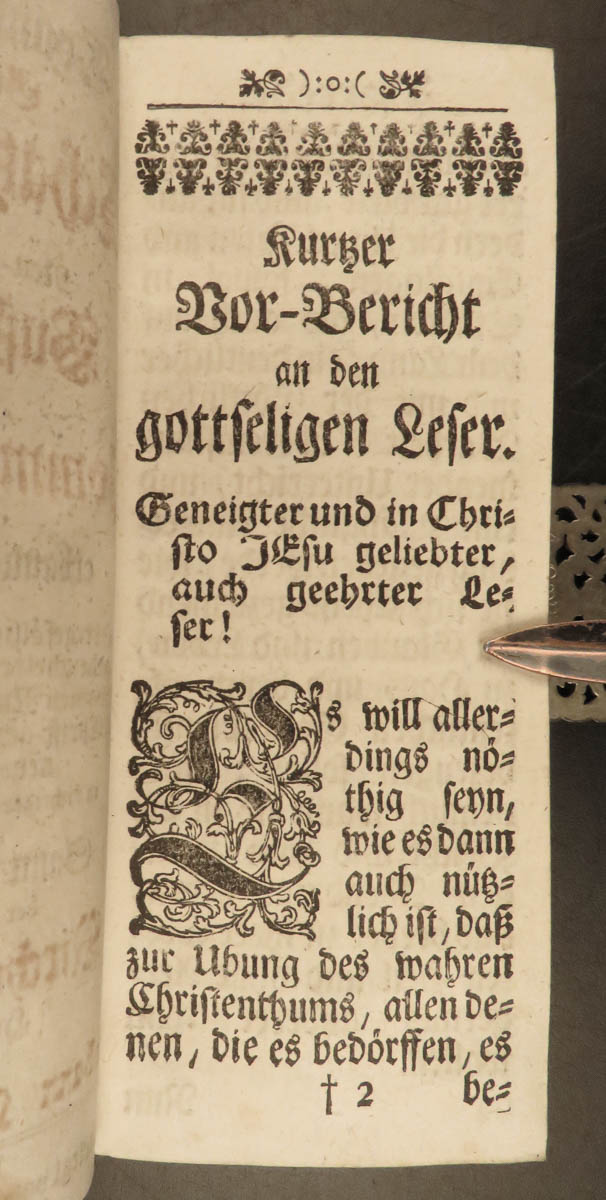 ):o:(
Kurtzer
Vor-Bericht
an den
gottseligen Leser.
Geneigter und in Chri-
sto JEsu geliebter,
auch geehrter Le-
ser!
Es will aller-
dings nö-
thig seyn,
wie es dann
auch nütz-
lich ist, daß
zur Ubung des wahren
Christenthums, allen de-
nen, die es bedörffen, es
† 2 be-